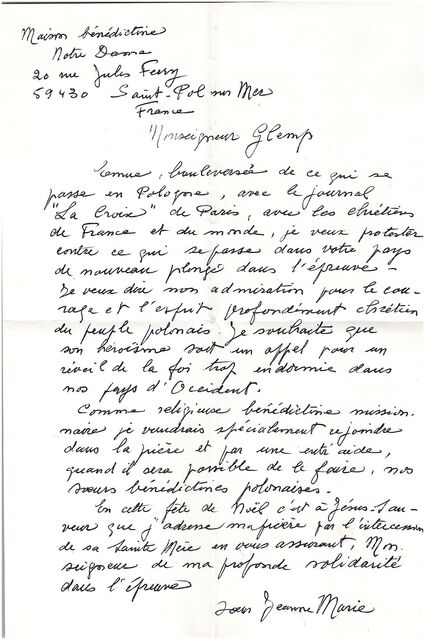 Maison bénédictine
Notre Dame
20 rue Jules Ferry
59430 Saint-Pol sur Mer
France
Monseigneur Glemp
Emue, bouleversée de ce qui se
passe en Pologne, avec le journal
"La Croix" de Paris, avec les chrétiens
de France et du monde, je veux protester
contre ce qui se passe dans votre pays
de nouveau plongé dans l'épreuve -
Je veux dire mon admiration pour le cou-
rage et l'esprit profondément chrétien
du peuple polonais. Je souhaite que
son héroïsme soit un appel pour un
réveil de la foi trop endormie dans
nos pays d'Occident.
Comme religieuse bénédictine mission-
naire je voudrais spécialement rejoindre
dans la prière et par une entr'aide,
quand il sera possible de le faire, nos
sœurs bénédictines polonaises.
En cette fête de Noël c'est à Jésus-Sau-
veur que j'adresse ma prière par l'intercession
de sa Sainte Mère en vous assurant, Mon-
seigneur de ma profonde solidarité
dans l'épreuve
sœur Jeanne Marie